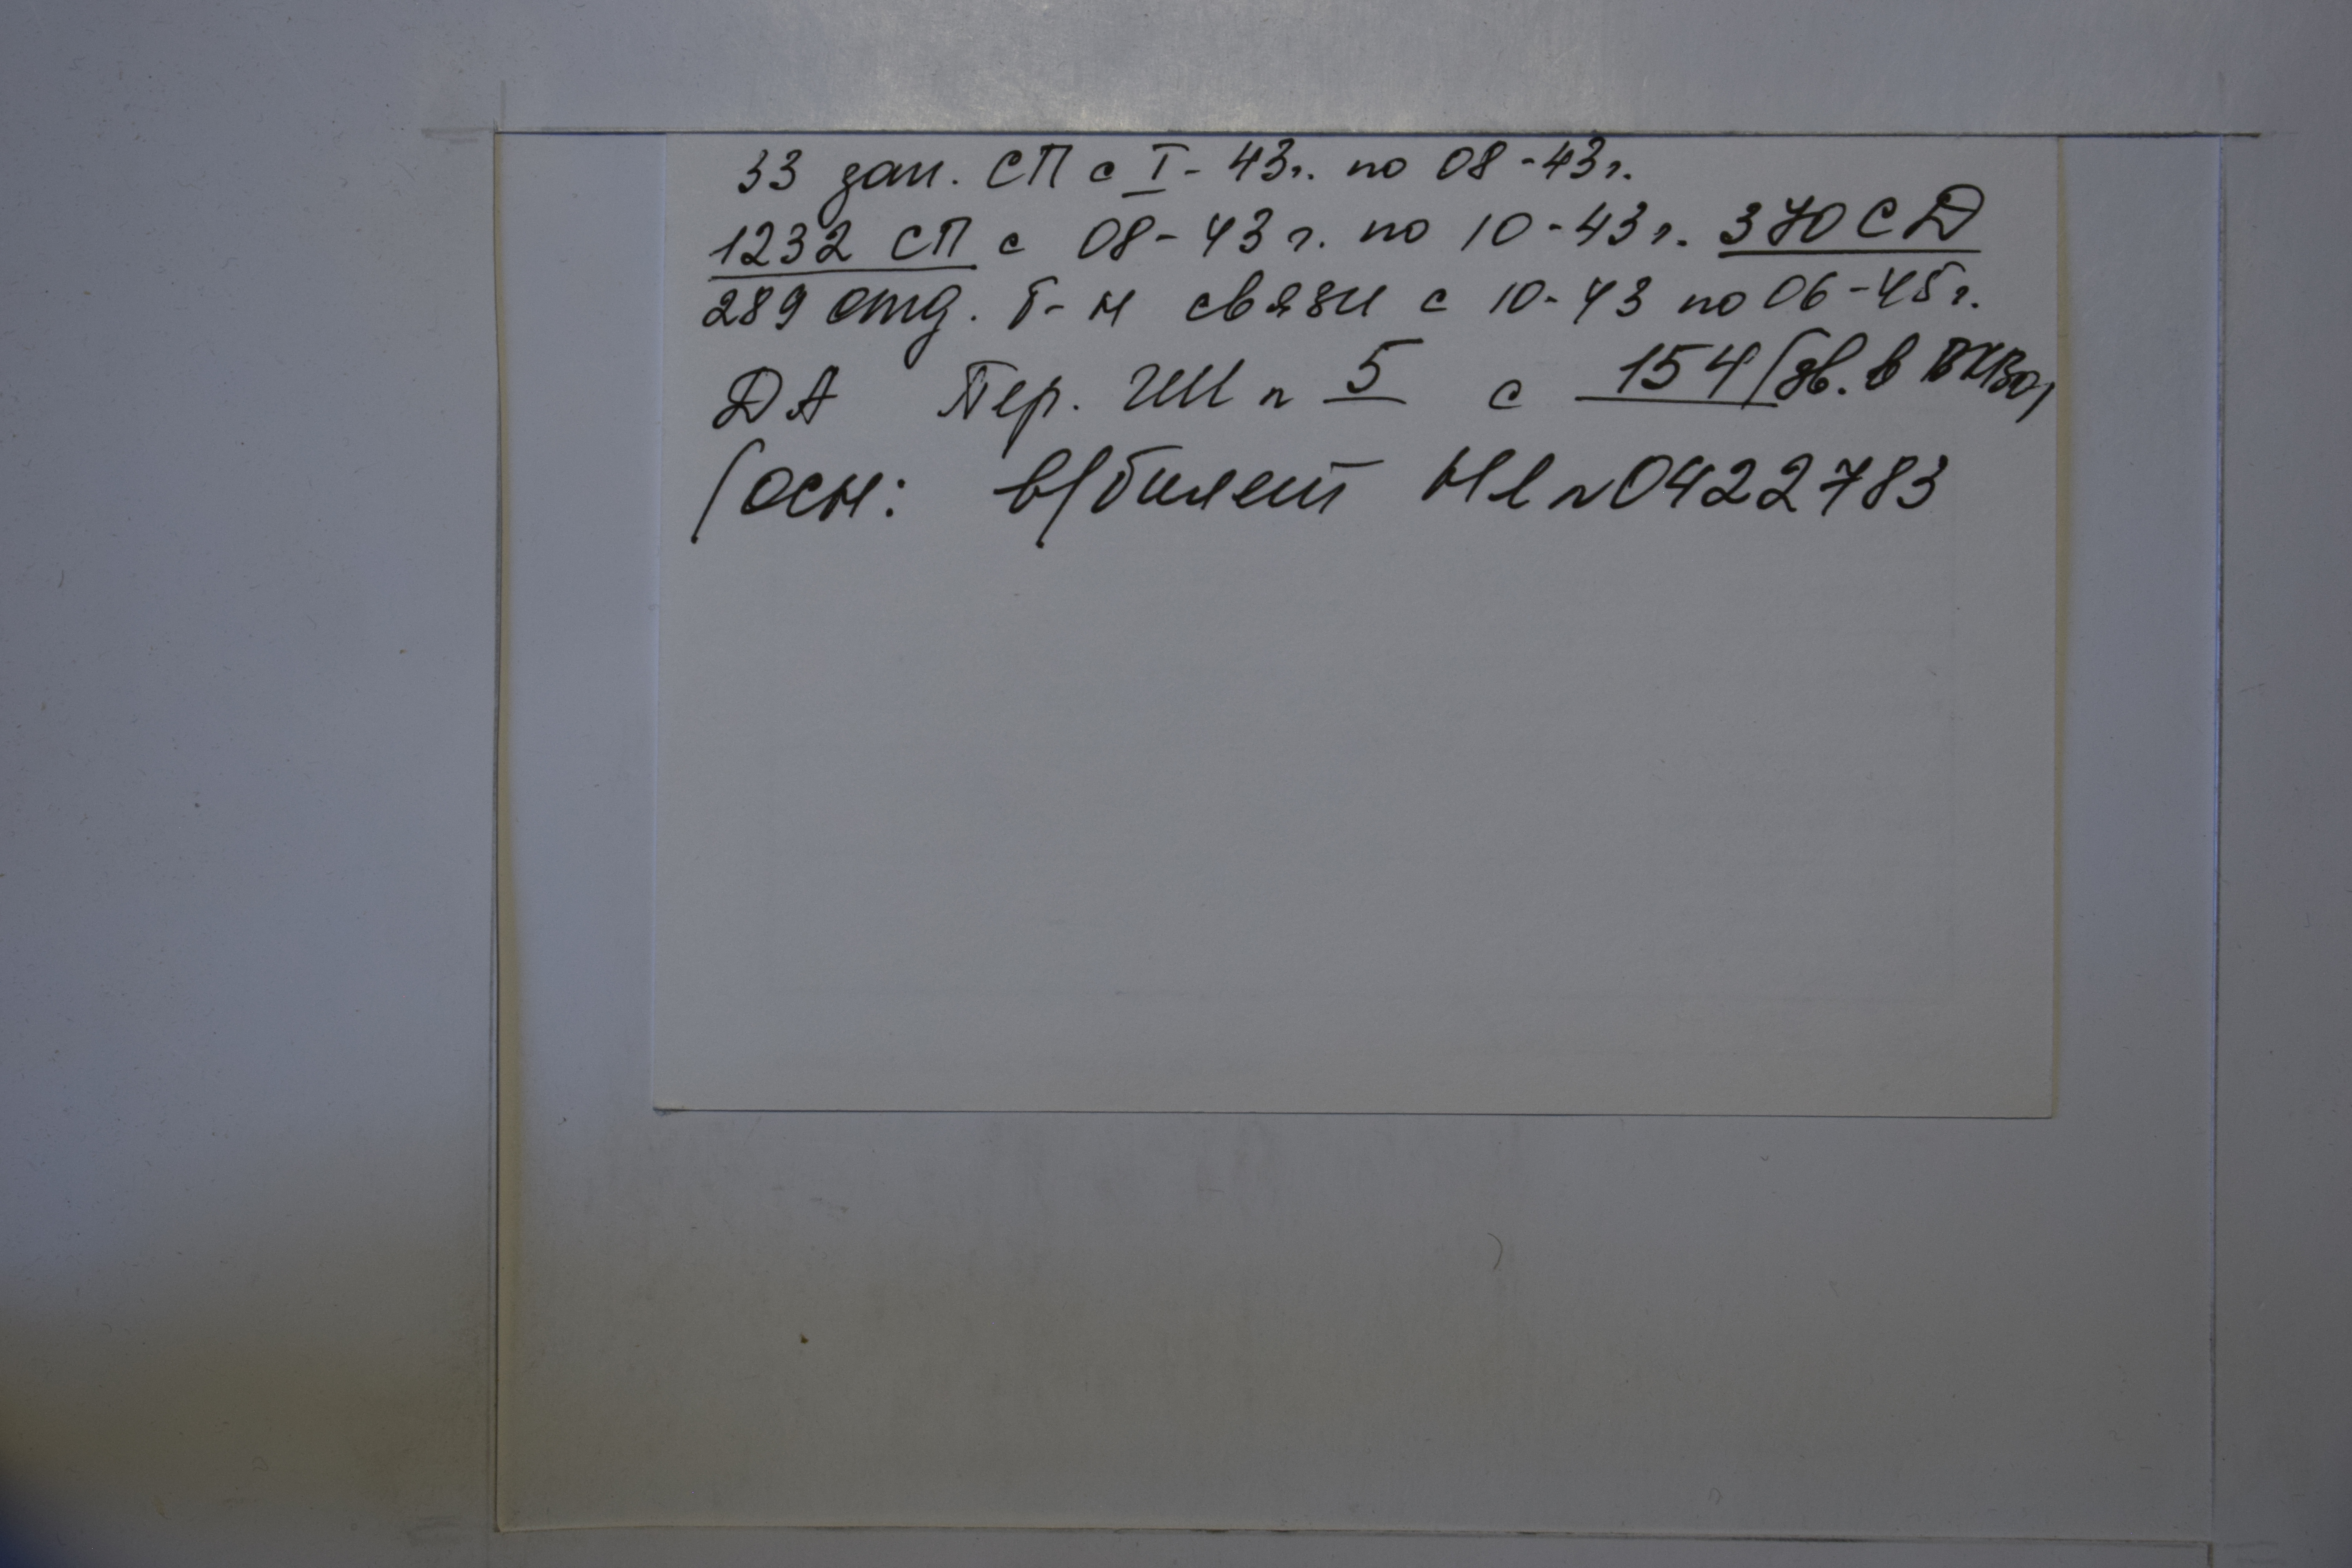 33 зап. СП с I-43г. по 08-43г.
1232 СП с 08-43г. по 10-43г. 370 СД
289 отд. б-н связи с 10-43 по 06-45г.
ДА Пер. №5 с 154/
/осн: в/билет НІ №0422783